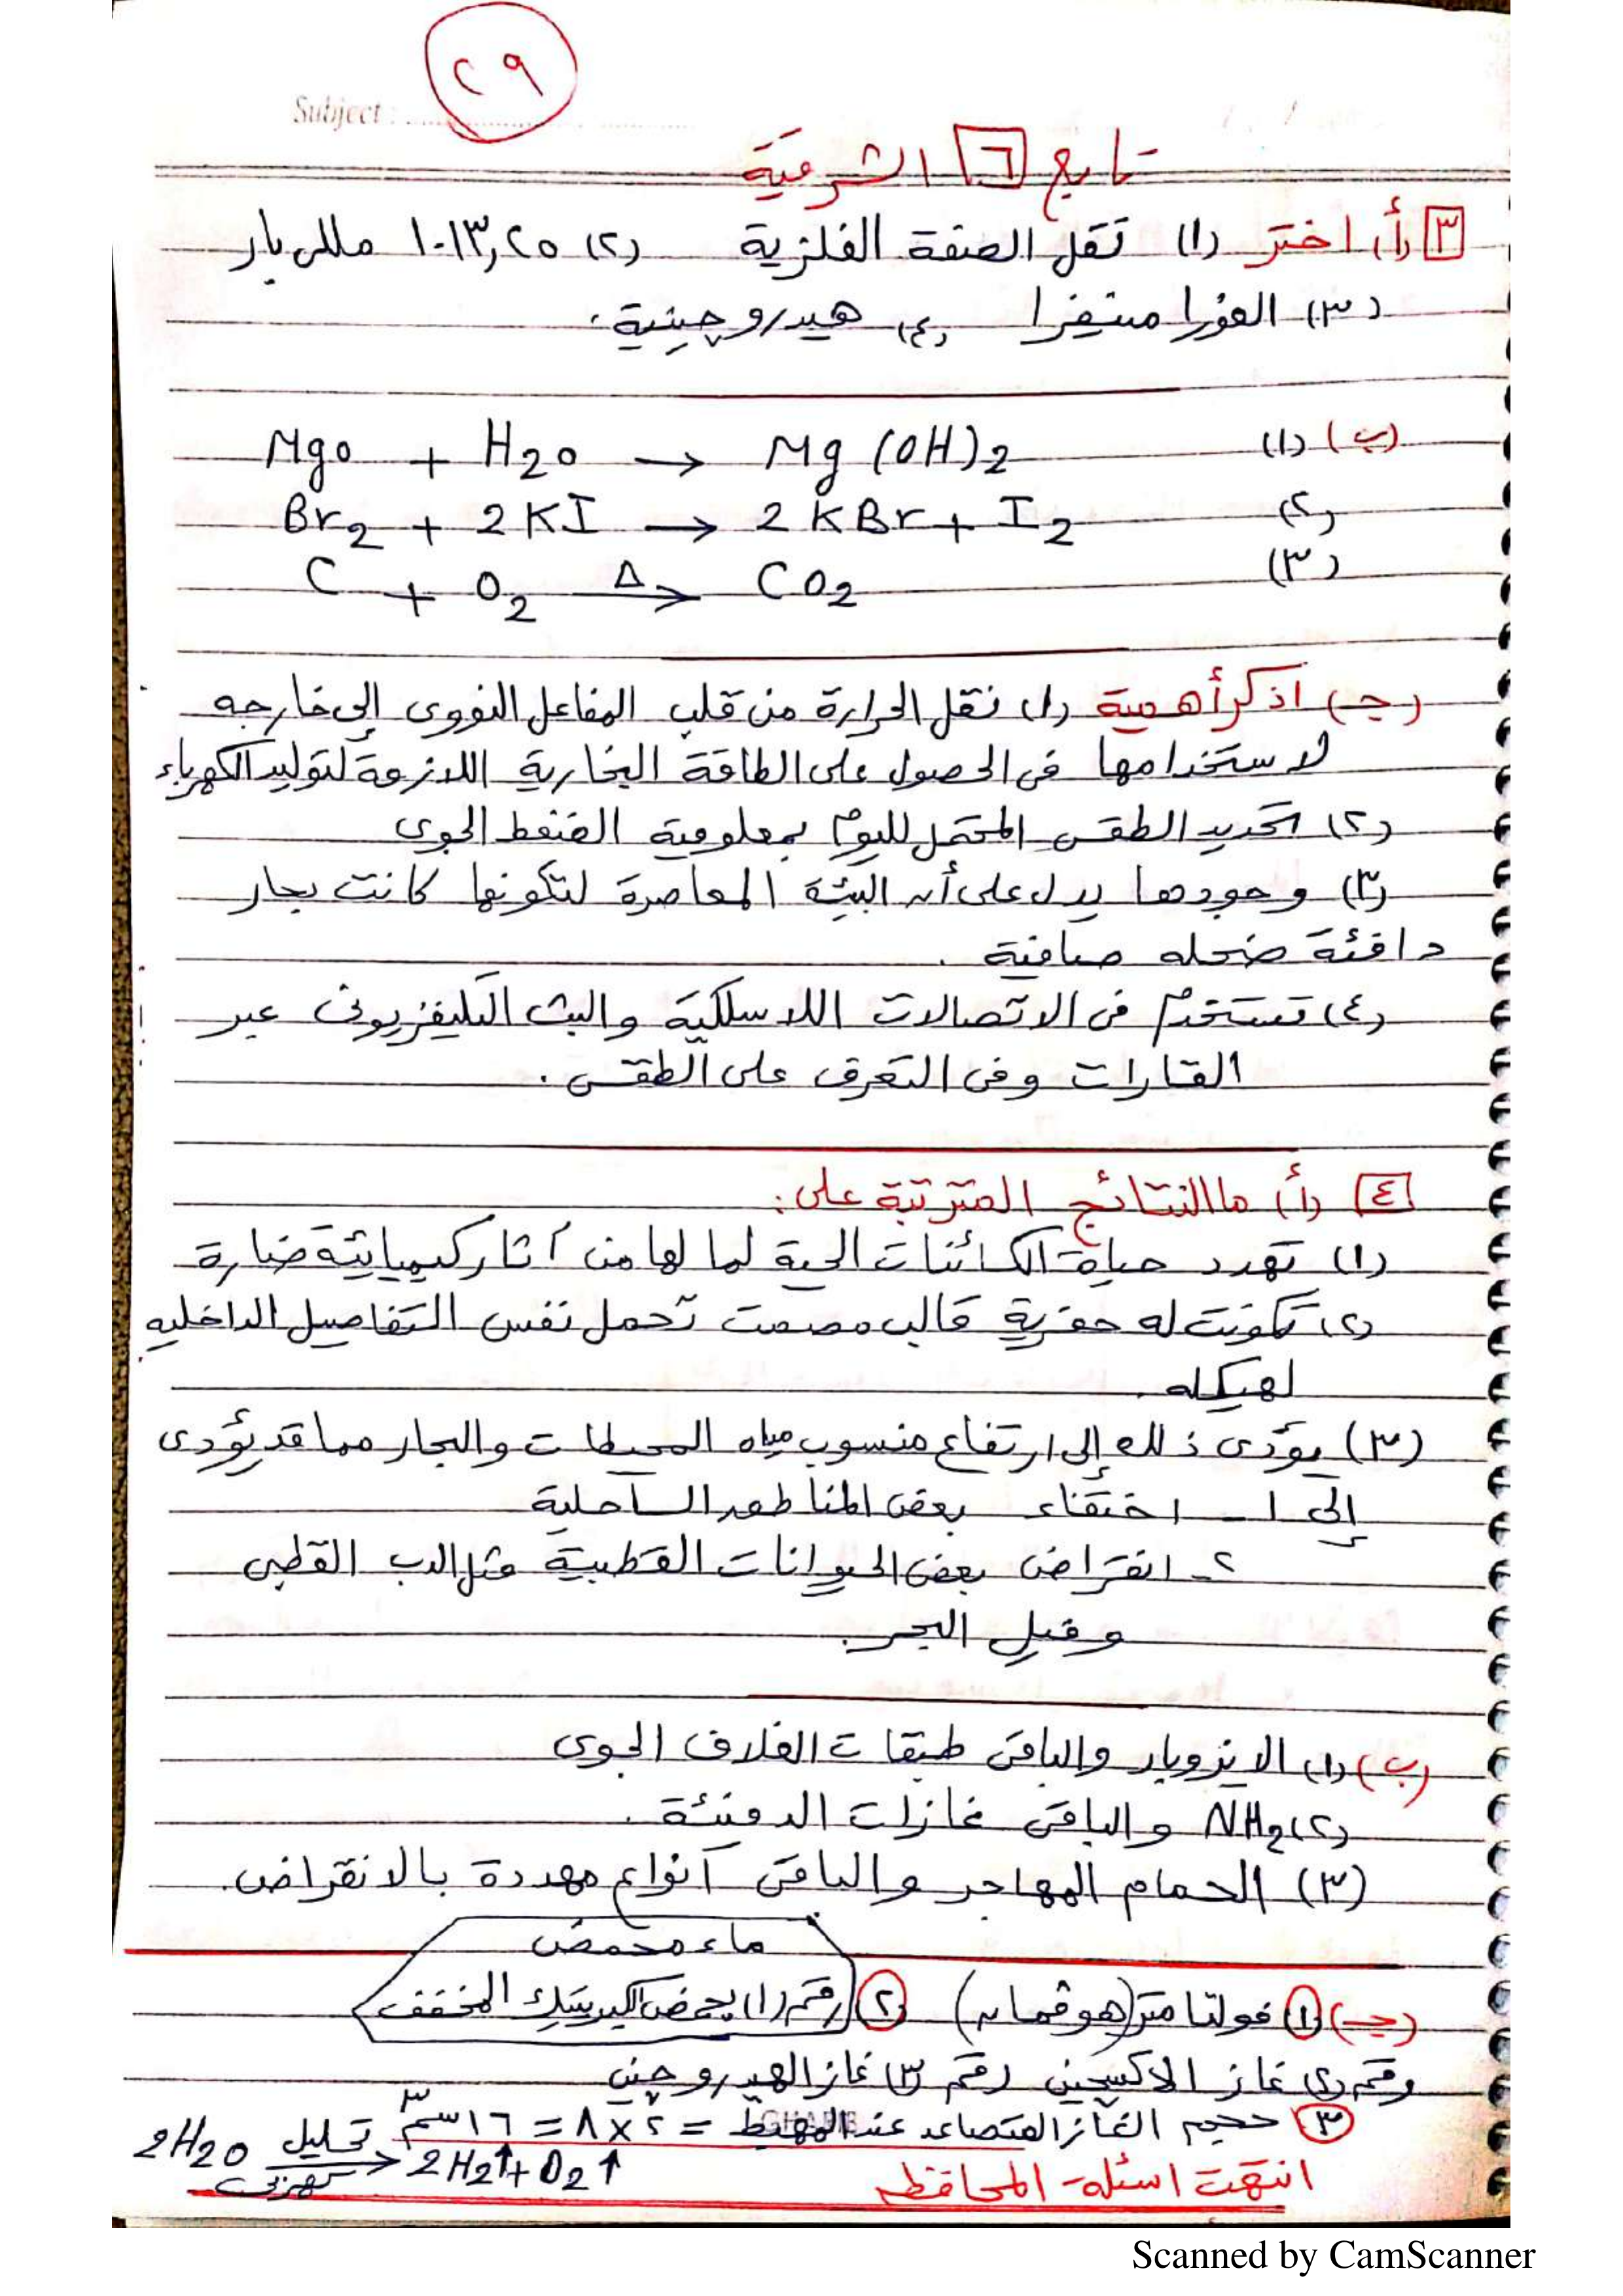 ٢٩
Subject :
تابع ٦ الشرقية
٣ (أ) اختر (١) تقل الصفة الفلزية (٢) ١٠١٣,٢٥ مللى بار
(٣) الفورا منيفرا (٤) هيدروجينية.
(ب) (١) MgO + H2O → Mg (OH)2
(٢) Br2 + 2KI → 2KBr + I2
(٣) C + O2 Δ→ CO2
(جـ) اذكر أهمية (١) نقل الحرارة من قلب المفاعل النووى إلى خارجه
لاستخدامها فى الحصول على الطاقة البخارية اللازمة لتوليد الكهرباء
(٢) تحديد الطقس المحتمل لليوم بمعلومية الضغط الجوى
(٣) وجودها يدل على أن البيئة المعاصرة لتكونها كانت بحار
دافئة ضحله صافية .
(٤) تستخدم فى الاتصالات اللاسلكية والبث التليفزيونى عبر
القارات وفى التعرف على الطقس .
٤ (أ) ما النتائج المترتبة على :
(١) تهدد حياة الكائنات الحية لما لها من آثار كيميائية ضارة
(٢) تكونت له حفرية قالب مصمت تحمل نفس التفاصيل الداخليه
لهيكله .
(٣) يؤدى ذلك إلى ارتفاع منسوب مياه المحيطات والبحار مما قد يؤدى
إلى ١ - اختفاء بعض المناطق الساحلية
٢ - انقراض بعض الحيوانات القطبية مثل الدب القطبى
وفيل البحر.
(ب) (١) الايزوبار والباقى طبقات الغلاف الجوى
(٢) NH2 والباقى غازات الدفيئة .
(٣) الحمام المهاجر والباقى أنواع مهددة بالانقراض.
ماء محمض
(جـ) ١ فولتامتر (هوفمان) ٢ رقم (١) بحمض الكبريتيك المخفف
رقم (٢) غاز الاكسجين رقم (٣) غاز الهيدروجين
٣ حجم الغاز المتصاعد عند المهبط = ٢ × ٨ = ١٦ سم٣
2H2O تحليل كهربى → 2H2↑ + O2↑
انتهت اسئلة المحافظه
Scanned by CamScanner